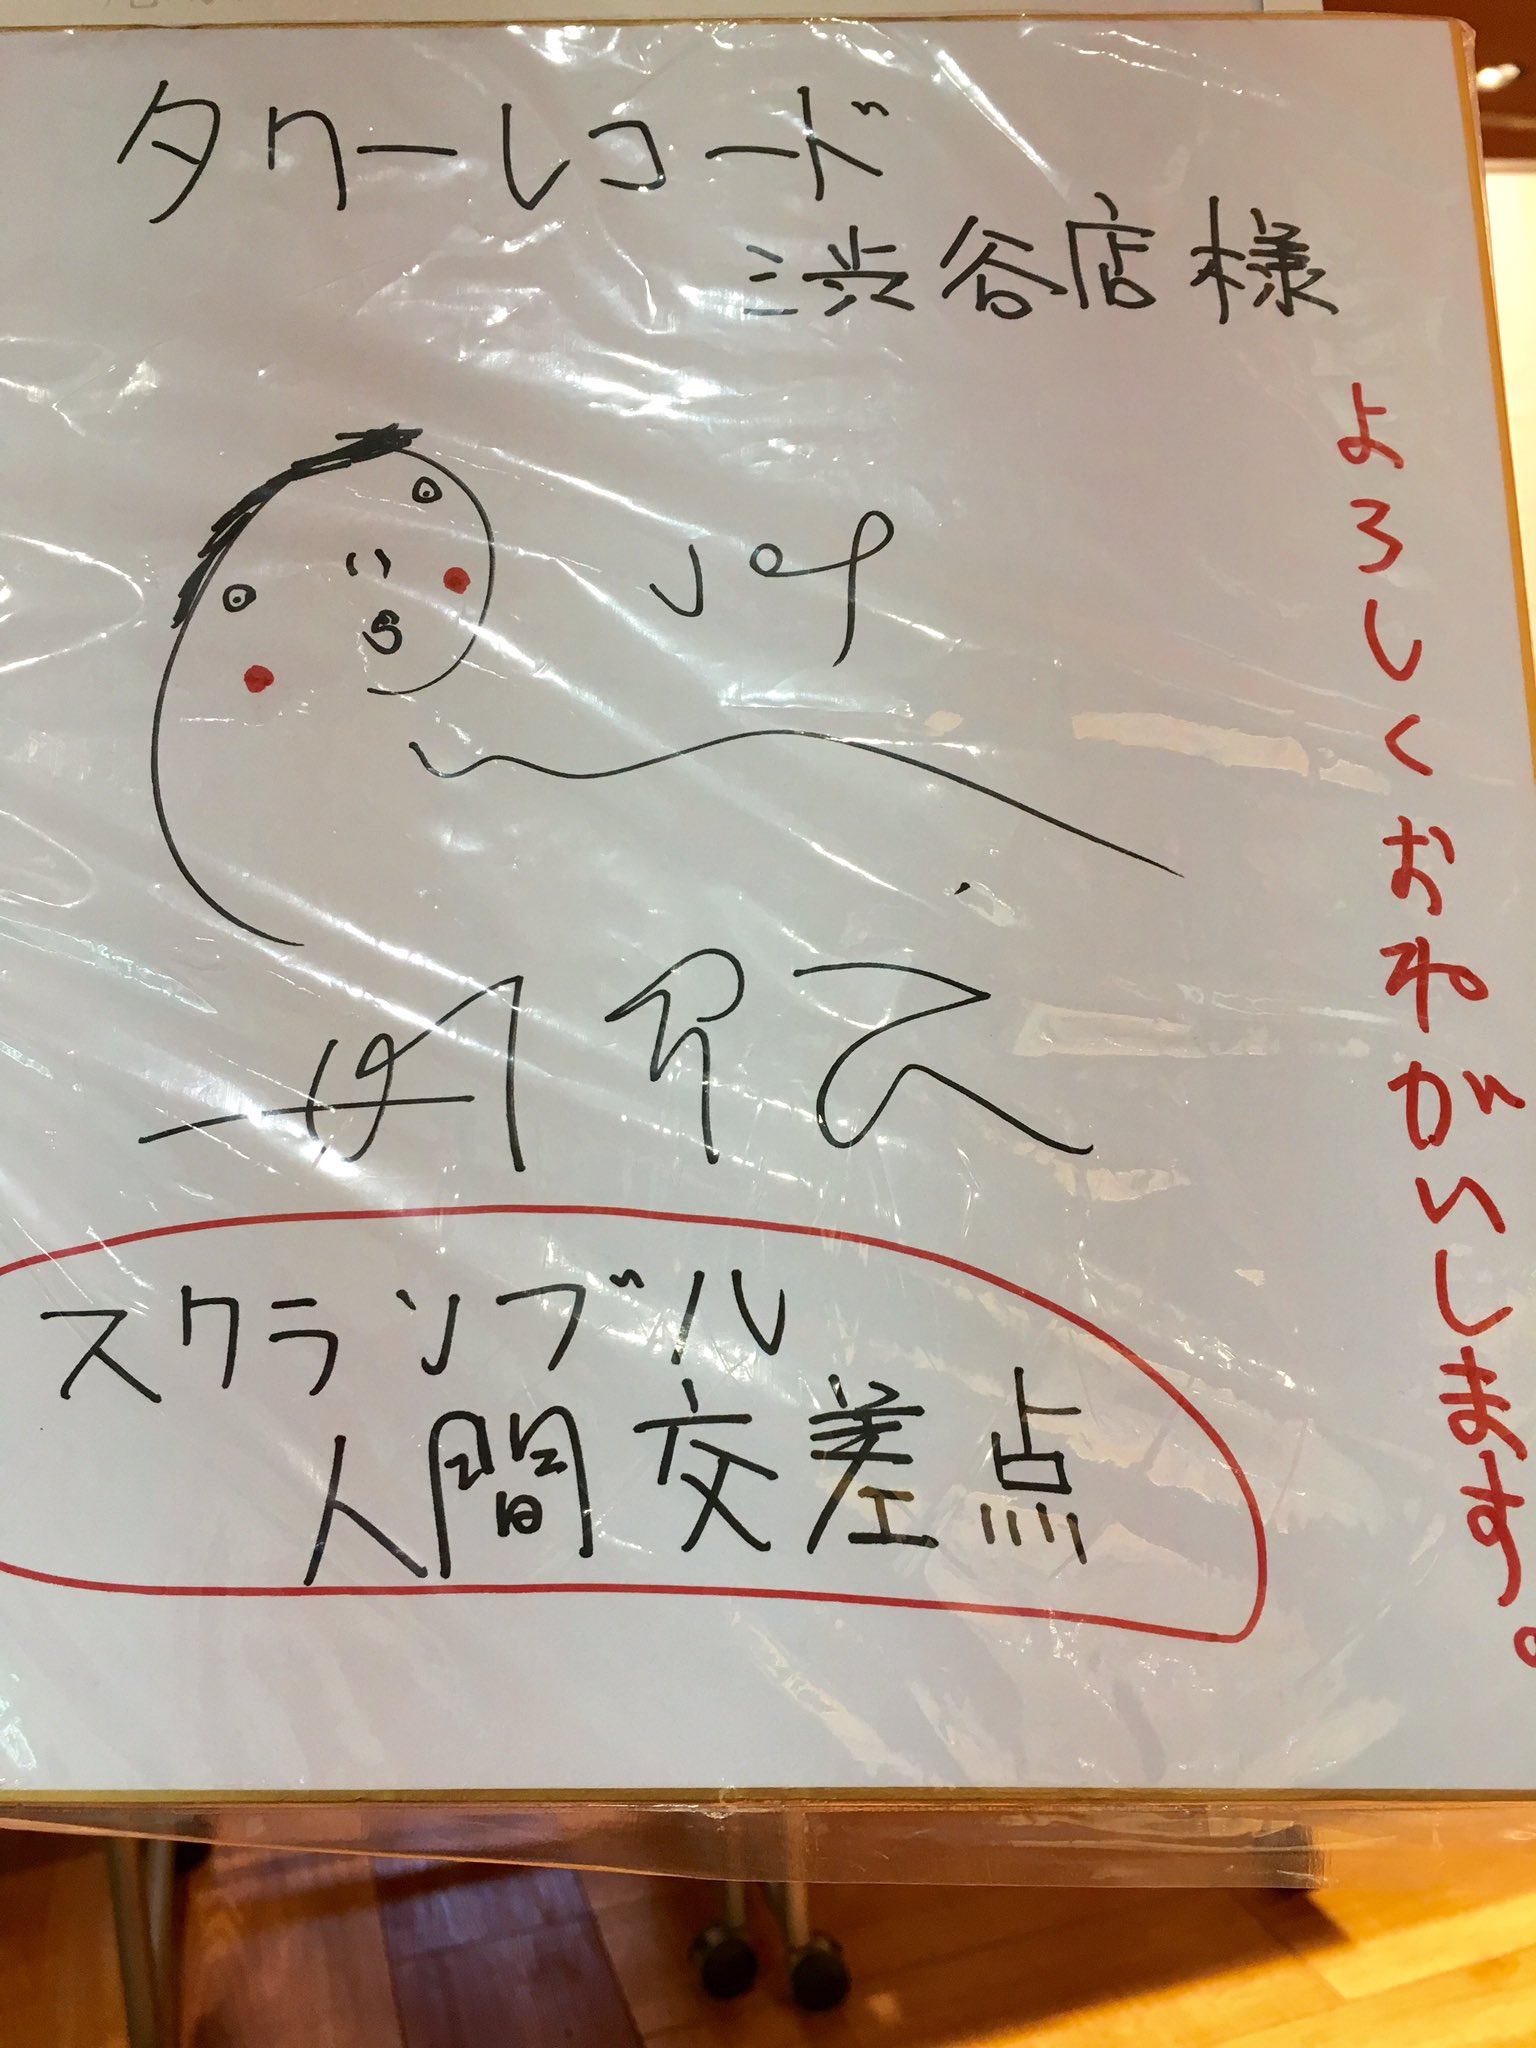 タワーレコード
渋谷店様
よろしくおねがいします。
スクランブル
人間交差点